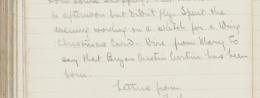 in afternoon but didn't fly. Spent the
evening working on a sketch for a Wing
Christmas Card. Wire from Mary to
say that Bryan Martin has been
born.
Letters from